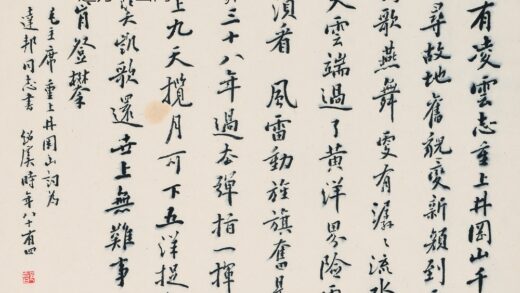 有凌雲志重上井岡山千
尋故地舊貌變新顏到
歌燕舞更有潺々流水
入雲端過了黃洋界險
須看風雷動旌旗奮是
三十八年過去彈指一揮
上九天攬月可下五洋捉
笑凱歌還世上無難事
肯登攀
毛主席重上井岡山詞為
達邦同志書 紹虞時年八十有四